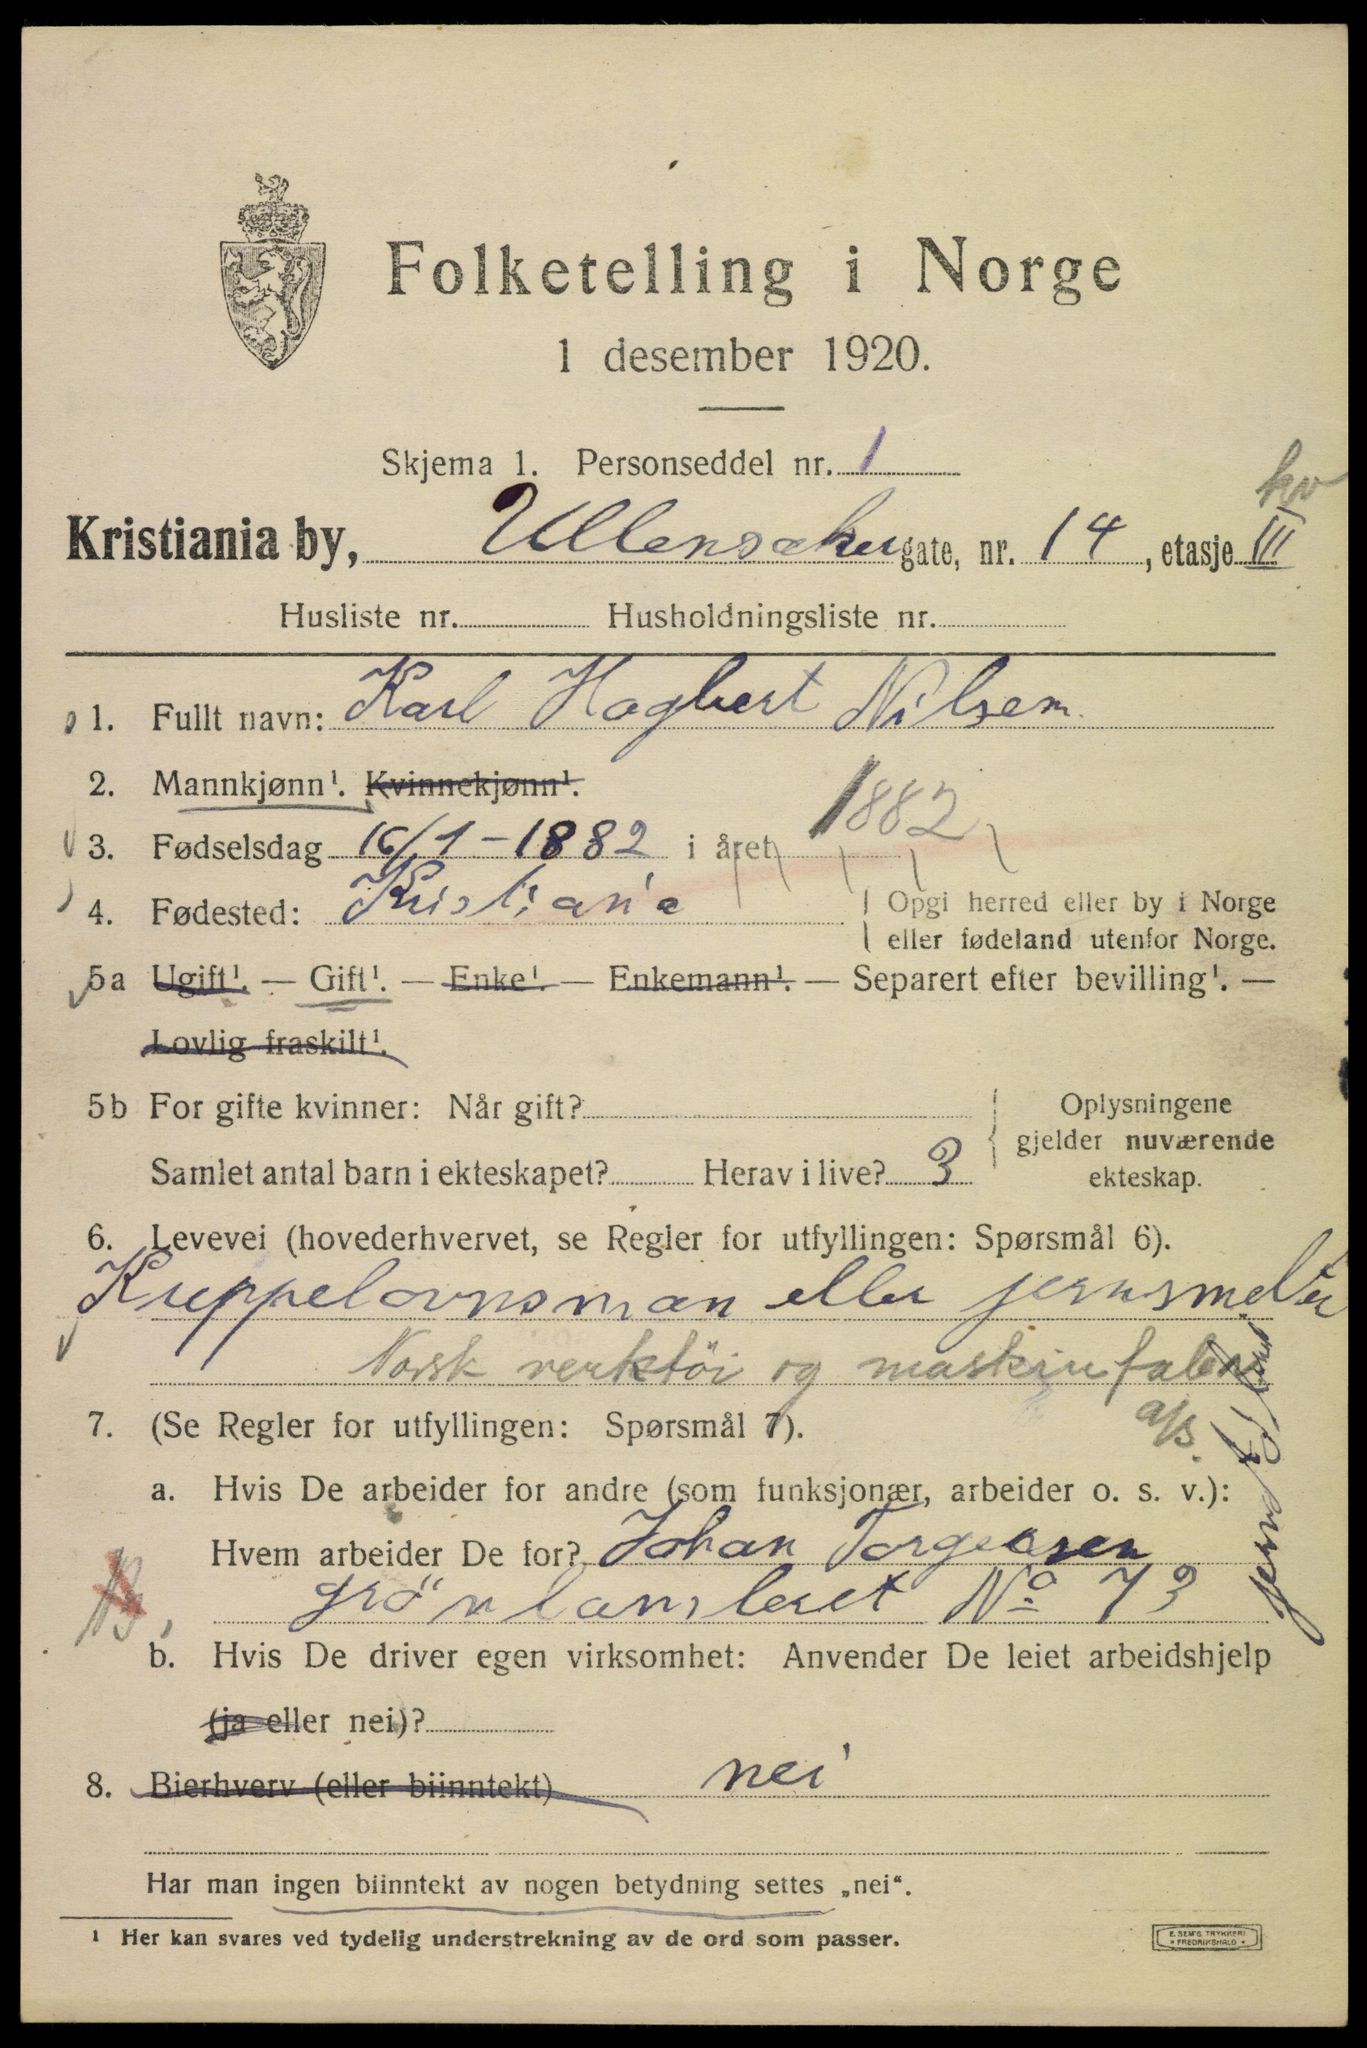 Folketelling i Norge
1 desember 1920.
Skjema 1. Personseddel nr. 1
hv
Kristiania by, Ullensaker gate, nr. 14, etasje III
Husliste nr. Husholdningsliste nr.
1. Fullt navn: Karl Hagbert Nilsen
2. Mannkjønn¹. Kvinnekjønn¹.
3. Fødselsdag 16/1-1882 i året 1882
4. Fødested: Kristiania
Opgi herred eller by i Norge
eller fødeland utenfor Norge.
5a Ugift¹. — Gift¹. — Enke¹. — Enkemann¹. — Separert efter bevilling¹. —
Lovlig fraskilt¹.
5b For gifte kvinner: Når gift?
Samlet antal barn i ekteskapet? Herav i live? 3
Oplysningene
gjelder nuværende
ekteskap.
6. Levevei (hovederhvervet, se Regler for utfyllingen: Spørsmål 6).
Kuppelovnsman eller jernsmelter
Norsk verktöi og maskinfabr
a/s.
7. (Se Regler for utfyllingen: Spørsmål 7).
a. Hvis De arbeider for andre (som funksjonær, arbeider o. s. v.):
Hvem arbeider De for? Johan Torgersen
grönlansleret No 73
b. Hvis De driver egen virksomhet: Anvender De leiet arbeidshjelp
(ja eller nei)?
8. Bierhverv (eller biinntekt) nei
Har man ingen biinntekt av nogen betydning settes „nei“.
¹ Her kan svares ved tydelig understrekning av de ord som passer.
E. SEM'S TRYKKERI
FREDRIKSHALD